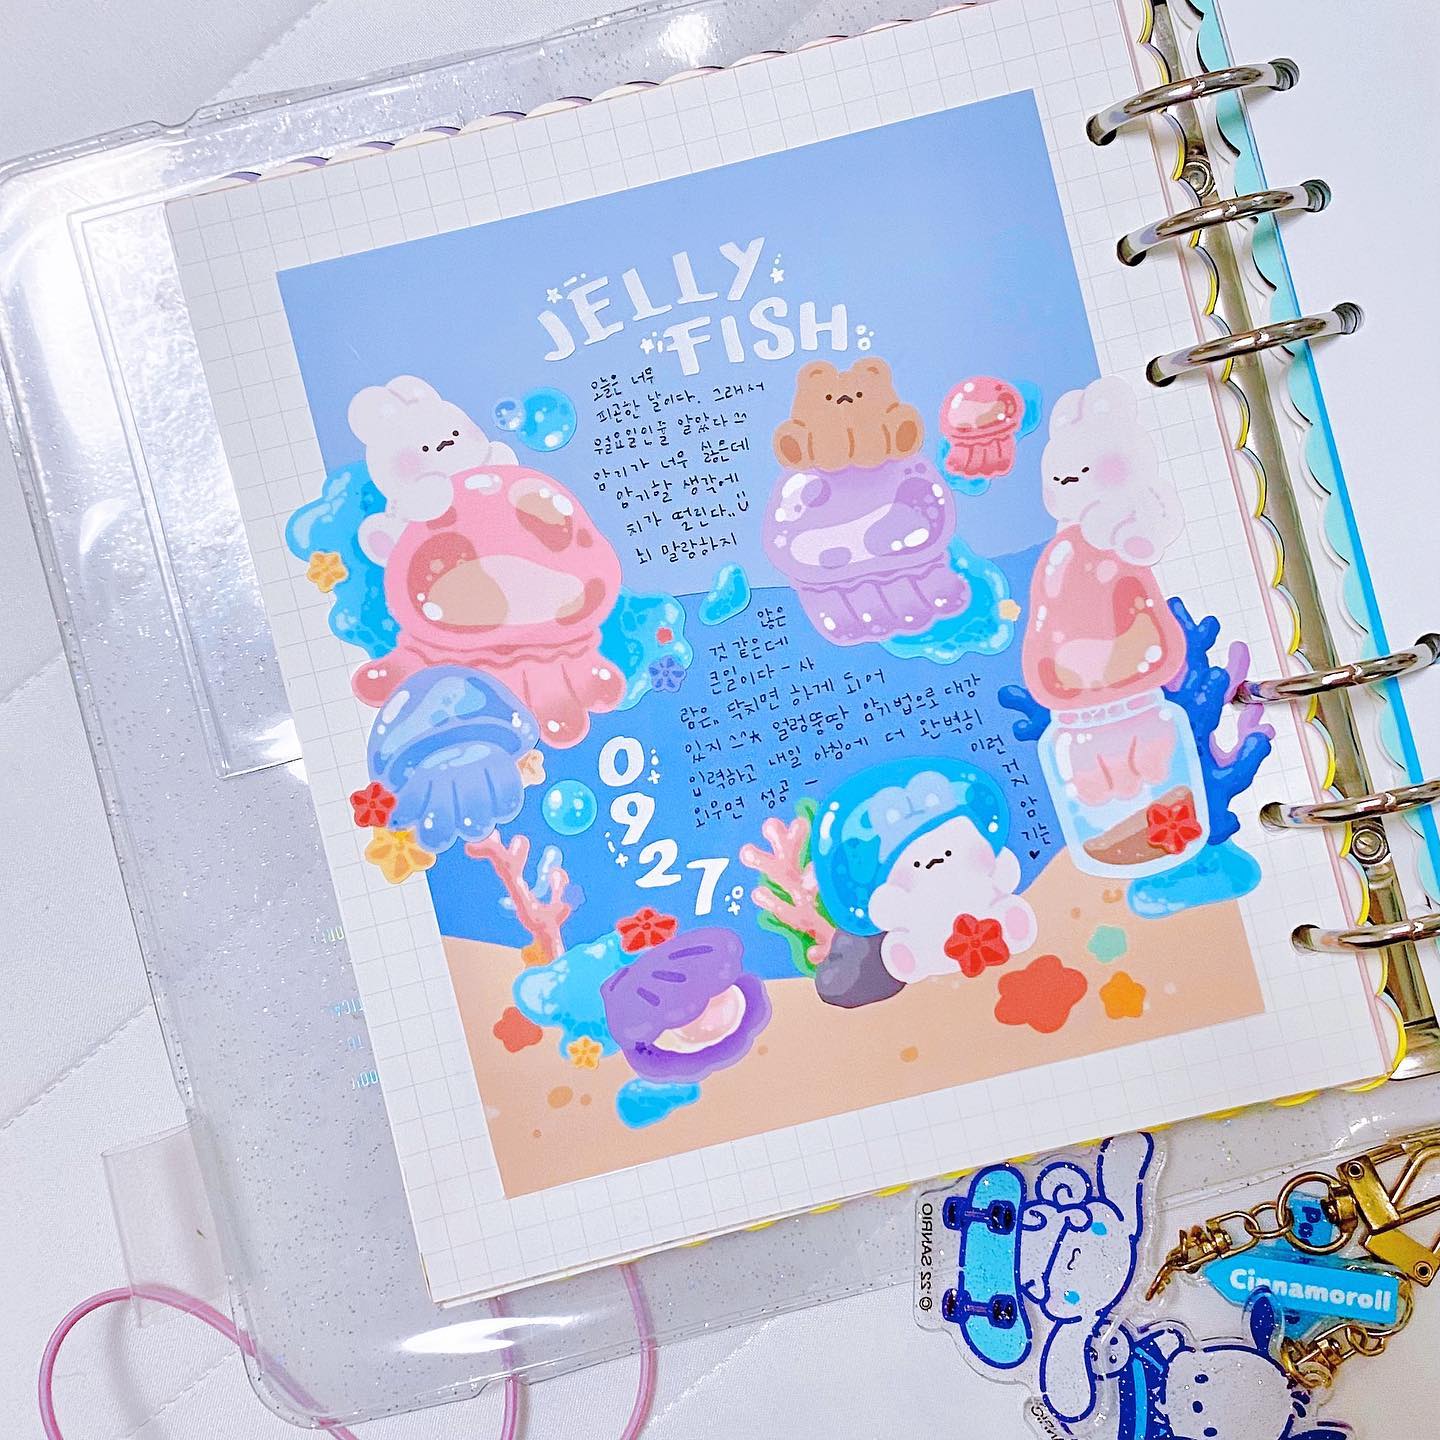 JELLY
FISH
오늘은 너무
피곤한 날이다. 그래서
월요일인줄 알았다
암기가 너무 싫은데
암기할 생각에
치가 떨린다..
뇌 말랑하지
않은
것 같은데
큰일이다 - 사
람은.. 닥치면 하게 되어
있지 ^^* 얼렁뚱땅 암기법으로 대강
입력하고 내일 아침에 더 완벽히
외우면 성공 -
이런
거지
암
기는
♥
0
9
2
7
© '22 SANRIO
Cinnamoroll
Po